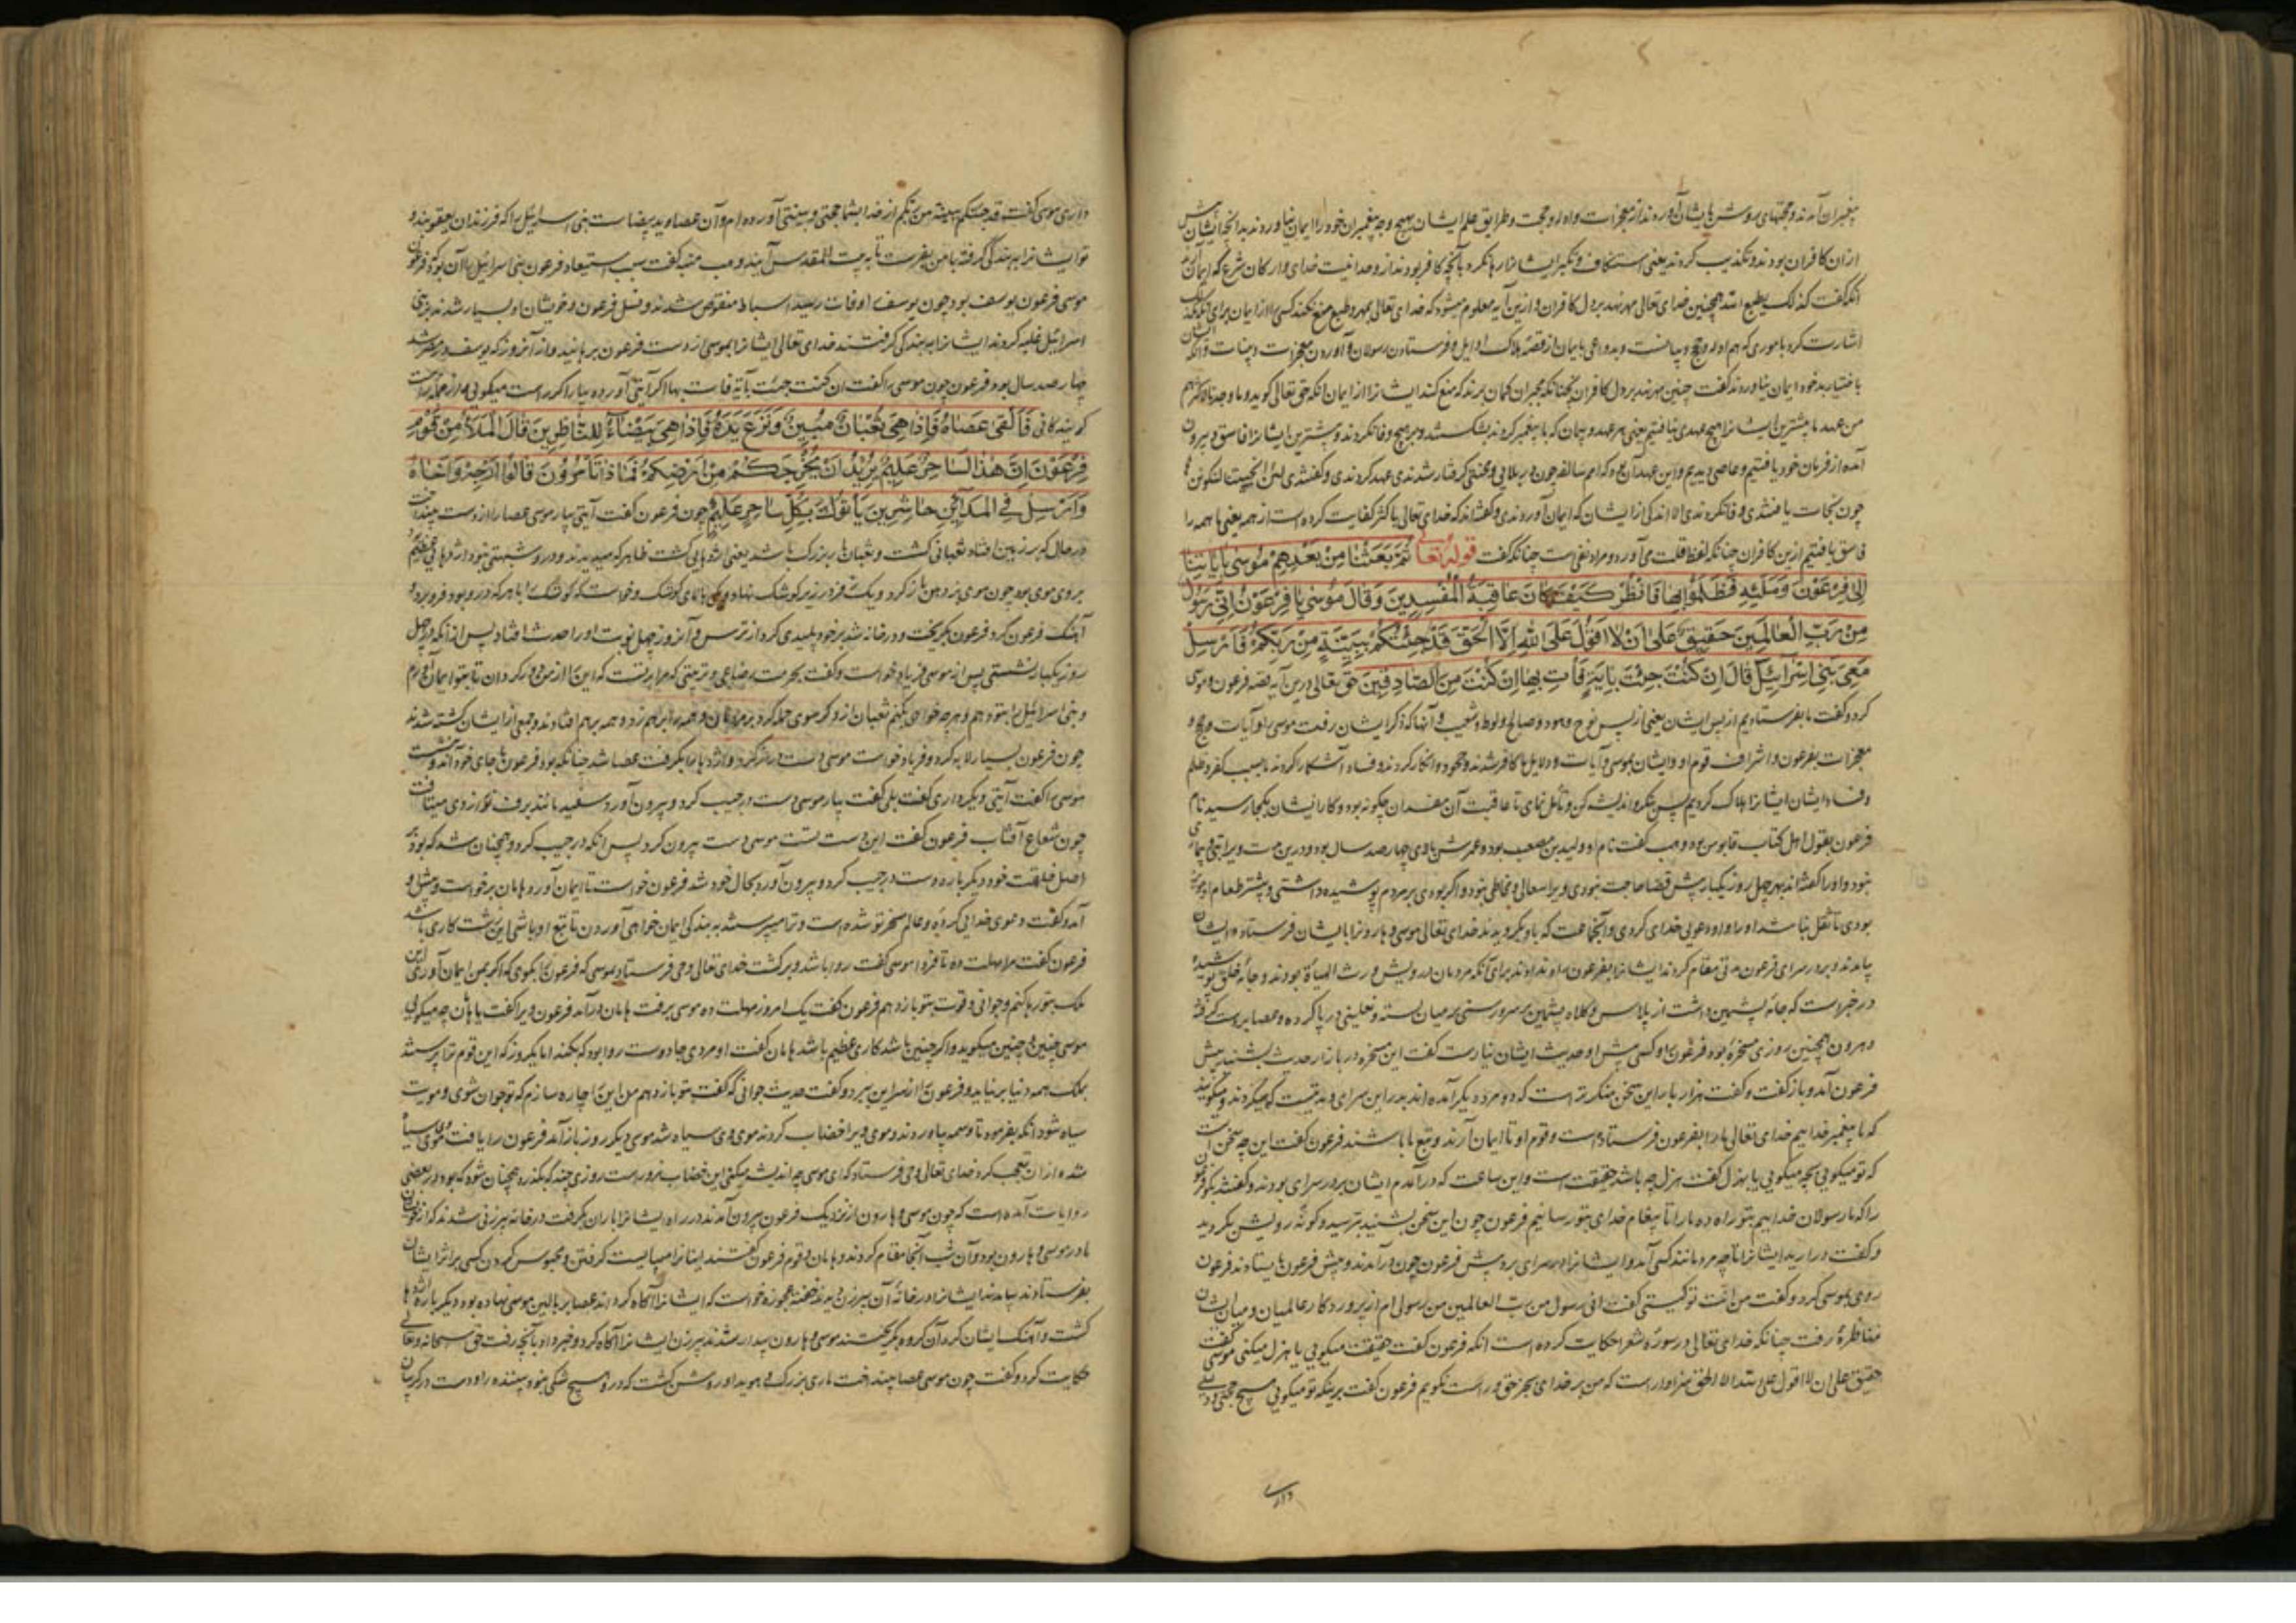 پیغمبران آمدند و حجتهای روشن بایشان آوردند از معجزات و ادله و حجت و طرایق علم ایشان بهیچ وجه پیغمبران خود را ایمان نیاوردند بدانچه ایشان پیش
ازان کافران بودند و تکذیب کردند یعنی استنکاف و تکبر ایشانرا رها نکرد بآنچه کافر بودند از وحدانیت خدای و ارکان شرع که ایمان
آنکه گفت کذلک یطبع الله همچنین خدای تعالی مهر نهد بر دل کافران و ازین آیه معلوم میشود که خدای تعالی بمهر و طبع منع نکند کسی را از ایمان برای آنکه
اشارت کرد باموری که هم ادله و حجج و بیانست و بدواعی بایمان از قصه هلاک اوایل و فرستادن رسولان و آوردن معجزات و بینات و آنکه ایشان
باختیار بد خود ایمان نیاوردند گفت چنین مهر نهد بر دل کافران نچنانکه مجبران گمان برند که منع کند ایشانرا از ایمان آنکه حق تعالی گوید و ما وجدنا لاکثرهم
من عهد ما بیشترین ایشانرا هیچ عهدی نیافتیم یعنی هر عهد و پیمان که با پیغمبر کردند بشکستند و بر هیچ وفا نکردند و بیشترین ایشانرا فاسق و بیرون
آمده از فرمان خود یافتیم و عاصی دیدیم و این عهد آن بود که امم سالفه چون در بلائی و محنتی گرفتار شدندی عهد کردندی و گفتندی لئن انجیتنا لنکونن
چون نجات یافتندی وفا نکردندی الا اندکی از ایشان که ایمان آوردندی و گفته‌اند که خدای تعالی باکثر کفایت کرده است از همه یعنی ما همه را
فاسق یافتیم ازین کافران چنانکه لفظ قلت می آورد و مراد نفی است چنانکه گفت قوله تعالی ثُمَّ بَعَثْنَا مِنْ بَعْدِهِمْ مُوسَى بِآيَاتِنَا
إِلَى فِرْعَوْنَ وَمَلَئِهِ فَظَلَمُوا بِهَا فَانْظُرْ كَيْفَ كَانَ عَاقِبَةُ الْمُفْسِدِينَ وَقَالَ مُوسَى يَا فِرْعَوْنُ إِنِّي رَسُولٌ
مِنْ رَبِّ الْعَالَمِينَ حَقِيقٌ عَلَى أَنْ لَا أَقُولَ عَلَى اللَّهِ إِلَّا الْحَقَّ قَدْ جِئْتُكُمْ بِبَيِّنَةٍ مِنْ رَبِّكُمْ فَأَرْسِلْ
مَعِيَ بَنِي إِسْرَائِيلَ قَالَ إِنْ كُنْتَ جِئْتَ بِآيَةٍ فَأْتِ بِهَا إِنْ كُنْتَ مِنَ الصَّادِقِينَ حق تعالی درین آیه قصه فرعون و موسی
کرد و گفت ما بفرستادیم از پس ایشان یعنی از پس نوح و هود و صالح و لوط و شعیب و آنها که ذکر ایشان رفت موسی را و آیات و حجج و
معجزات بفرعون و اشراف قوم او و ایشان بموسی و آیات و دلایل ما کافر شدند و جحود و انکار کردند و فساد آشکارا کردند ما بسبب کفر و ظلم
و فساد ایشان ایشانرا هلاک کردیم پس بنگر و اندیشه کن و تأمل نمای تا عاقبت آن مفسدان چگونه بود و کار ایشان بکجا رسید نام
فرعون بقول اهل کتاب قابوس بود و وهب گفت نام او ولید بن مصعب بود و عمرش چهارصد سال بود و درین مدت ویرا تبی و بیماری
نبود و او را گفته‌اند بهر چهل روز یکبار پیش قضا حاجت نبودی و ویرا سعال و مخاطی نبود و اگر بودی بر مردم پوشیده داشتی و بیشتر طعام او موز
بودی تا ثقل نباشد او را و او دعوی خدای کردی و آنجماعت که باو بگرویدند خدای تعالی موسی و هارونرا بایشان فرستاد و ایشان
بیامدند و بر در سرای فرعون مدتی مقام کردند ایشانرا بفرعون راه ندادند برای آنکه مردمان درویش و رث الهیأة بودند و جامه خلق پوشیده
در خبرست که جامه پشمین داشت از پلاس و کلاه پشمین بر سر و رسنی بر میان بسته و نعلینی در پا کرده و عصا بدست گرفته
و هرون همچنین روزی مسخره بود فرعونرا و کسی پیش او حدیث ایشان نیارست گفت این مسخره در بازار حدیث بشنید پیش
فرعون آمد و باز گفت و گفت هزار بار این سخن منکرتر است که دو مرد دیگر آمده‌اند بدر این سرای و مدتیست که میگردند و میگویند
که ما پیغمبر خدائیم خدای تعالی ما را بفرعون فرستاده است و قوم او تا ایمان آرند و تبع ما باشند فرعون گفت این چه سخن است
که تو میگویی بجد میگویی یا بهزل گفت هزل چه باشد حقیقت است و این ساعت که در آمدم ایشان بر در سرای بودند و گفتند بگو فرعون
را که ما رسولان خدائیم بتو راه ده ما را تا پیغام خدای بتو رسانیم فرعون چون این سخن بشنید بترسید و گونه رویش بگردید
و گفت در آرید ایشانرا تا چه مردمانند کسی آمد و ایشانرا در سرای برد پیش فرعون چون در آمدند و پیش فرعون بایستادند فرعون
روی بموسی کرد و گفت من انت تو کیستی گفت انی رسول من رب العالمین من رسولی ام از پروردگار عالمیان و میان ایشان
مناظره رفت چنانکه خدای تعالی در سوره شعرا حکایت کرده است آنکه فرعون گفت حقیقت میگویی یا هزل میکنی موسی گفت
حقیق علی ان لا اقول علی الله الا الحق سزاوار است که من بر خدای بجز حق و راست نگویم فرعون گفت برینکه تو میگویی هیچ حجتی و دلیلی
داری
داری موسی گفت قد جئتکم ببینة من ربکم از خدا بشما حجتی و بینتی آورده‌ام و آن عصا و ید بیضاست بنی اسرائیل را که فرزندان یعقوبند و
تو ایشانرا به بندگی گرفته با من بفرست تا به بیت المقدس آیند وهب منبه گفت سبب استبعاد فرعون بنی اسرائیل را آن بود که فرعون
موسی فرعون یوسف بود چون یوسف را وفات رسید اسباط منقرض شدند و نسل فرعون و خویشان او بسیار شدند بر بنی
اسرائیل غلبه کردند ایشانرا به بندگی گرفتند خدای تعالی ایشانرا بموسی از دست فرعون برهانید و از آنروز که یوسف در مصر شد
چهارصد سال بود فرعون چون موسی را گفت ان کنت جئت بآیة فات بها اگر آیتی آورده بیار اگر راست میگویی و از جمله راست
گویندگانی فَأَلْقَى عَصَاهُ فَإِذَا هِيَ ثُعْبَانٌ مُبِينٌ وَنَزَعَ يَدَهُ فَإِذَا هِيَ بَيْضَاءُ لِلنَّاظِرِينَ قَالَ الْمَلَأُ مِنْ قَوْمِ
فِرْعَوْنَ إِنَّ هَذَا لَسَاحِرٌ عَلِيمٌ يُرِيدُ أَنْ يُخْرِجَكُمْ مِنْ أَرْضِكُمْ فَمَاذَا تَأْمُرُونَ قَالُوا أَرْجِهْ وَأَخَاهُ
وَأَرْسِلْ فِي الْمَدَائِنِ حَاشِرِينَ يَأْتُوكَ بِكُلِّ سَاحِرٍ عَلِيمٍ چون فرعون گفت آیتی بیار موسی عصا را از دست بینداخت
در حال که بر زمین افتاد ثعبانی گشت و ثعبان مار بزرگ باشد یعنی اژدهایی گشت ظاهر که میدیدند و درو شبهتی نبود اژدهایی عظیم
بروی موی بود چون موی بز دهن باز کرد و یک فک در زیر کوشک نهاد و یکی بالای کوشک و خواست که کوشک را با هر که درو بود فرو برد
آهنگ فرعون کرد فرعون بگریخت و در خانه شد بر خود پلیدی کرد از ترس و آنروز چهل نوبت او را حدث افتاد پس ازانکه در چهل
روز یکبار نشستی پس از موسی فریاد خواست و گفت بحرمت رضاعی و تربیتی که مرا بر تست که این را از من بگردان تا بتو ایمان آرم
و بنی اسرائیل را بتو دهم و هر چه خواهی بکنم ثعبان ازو بگردید و حمله کرد بر مردمان و همه را بر هم زد و همه بر هم افتادند و جمعی از ایشان کشته شدند
چون فرعون بسیار لابه کرد و فریاد خواست موسی دست دراز کرد و اژدها را بگرفت عصا شد چنانکه بود فرعون با جای خود آمد و بنشست
موسی را گفت آیتی دیگر داری گفت بلی گفت بیار موسی دست در جیب کرد و بیرون آورد سفید مانند برف نور از وی میتافت
چون شعاع آفتاب فرعون گفت این دست تست موسی دست بیرون کرد پس آنکه در جیب کرد و همچنان شد که بود
اصل خلقت خود دیگر باره دست در جیب کرد و بیرون آورد بحال خود شد فرعون خواست تا ایمان آورد هامان برخواست و پیش او
آمد و گفت دعوی خدایی کرده و عالم مسخر تو شده است و ترا میپرستند به بنده کی ایمان خواهی آوردن تا تبع او باشی این زشت کاری باشد
فرعون گفت مرا مهلت ده تا فردا موسی گفت روا باشد و برگشت خدای تعالی وحی فرستاد بموسی که فرعونرا بگوی که اگر بمن ایمان آوری این
ملک بتو رها کنم و جوانی و قوت بتو باز دهم فرعون گفت یک امروز مهلت ده موسی برفت هامان در آمد فرعون ویرا گفت یا هامان چه میگویی
موسی چنین و چنین میگوید و اگر چنین باشد کاری عظیم باشد هامان گفت او مردی جادوست روا بود که بکند اما یکروز که این قوم ترا پرستند
بملک همه دنیا بر نیاید و فرعونرا از سر این ببرد و گفت حدیث جوانی که گفت بتو باز دهم من این را چاره سازم که تو جوان شوی و مویت
سیاه شود آنکه بفرمود تا وسمه بیاوردند و موی ویرا خضاب کردند موی وی سیاه شد موسی دیگر روز باز آمد فرعون را یافت موی وی سیاه
شده ازان تعجب کرد خدای تعالی وحی فرستاد که ای موسی چه اندیشه میکنی این خضاب مزورست روزی چند که بگذرد همچنان شود که بود در بعضی
روایات آمده است که چون موسی و هارون از نزدیک فرعون بیرون آمدند در راه ایشانرا باران بگرفت در خانه پیرزنی شدند که از خویشان
مادر موسی و هارون بود و آن شب آنجا مقام کردند و هامان و قوم فرعون گفتند اینانرا میبایست گرفتن و محبوس کردن کسی بر اثر ایشان
بفرستادند بیامدند ایشانرا در خانه آن پیرزن دیدند خفته عجوزه خواست که ایشانرا آگاه کرداند عصا بر بالین موسی نهاده بود دیگر باره اژدها
گشت و آهنگ ایشان کرد آن گروه بگریختند موسی و هارون بیدار شدند پیرزن ایشانرا آگاه کرد و خبر داد بآنچه رفت حق سبحانه و تعالی
حکایت کرد و گفت چون موسی عصا بینداخت ماری بزرگ و هویدا و روشن گشت که درو هیچ شکی نبود بیننده را و دست در گریبان